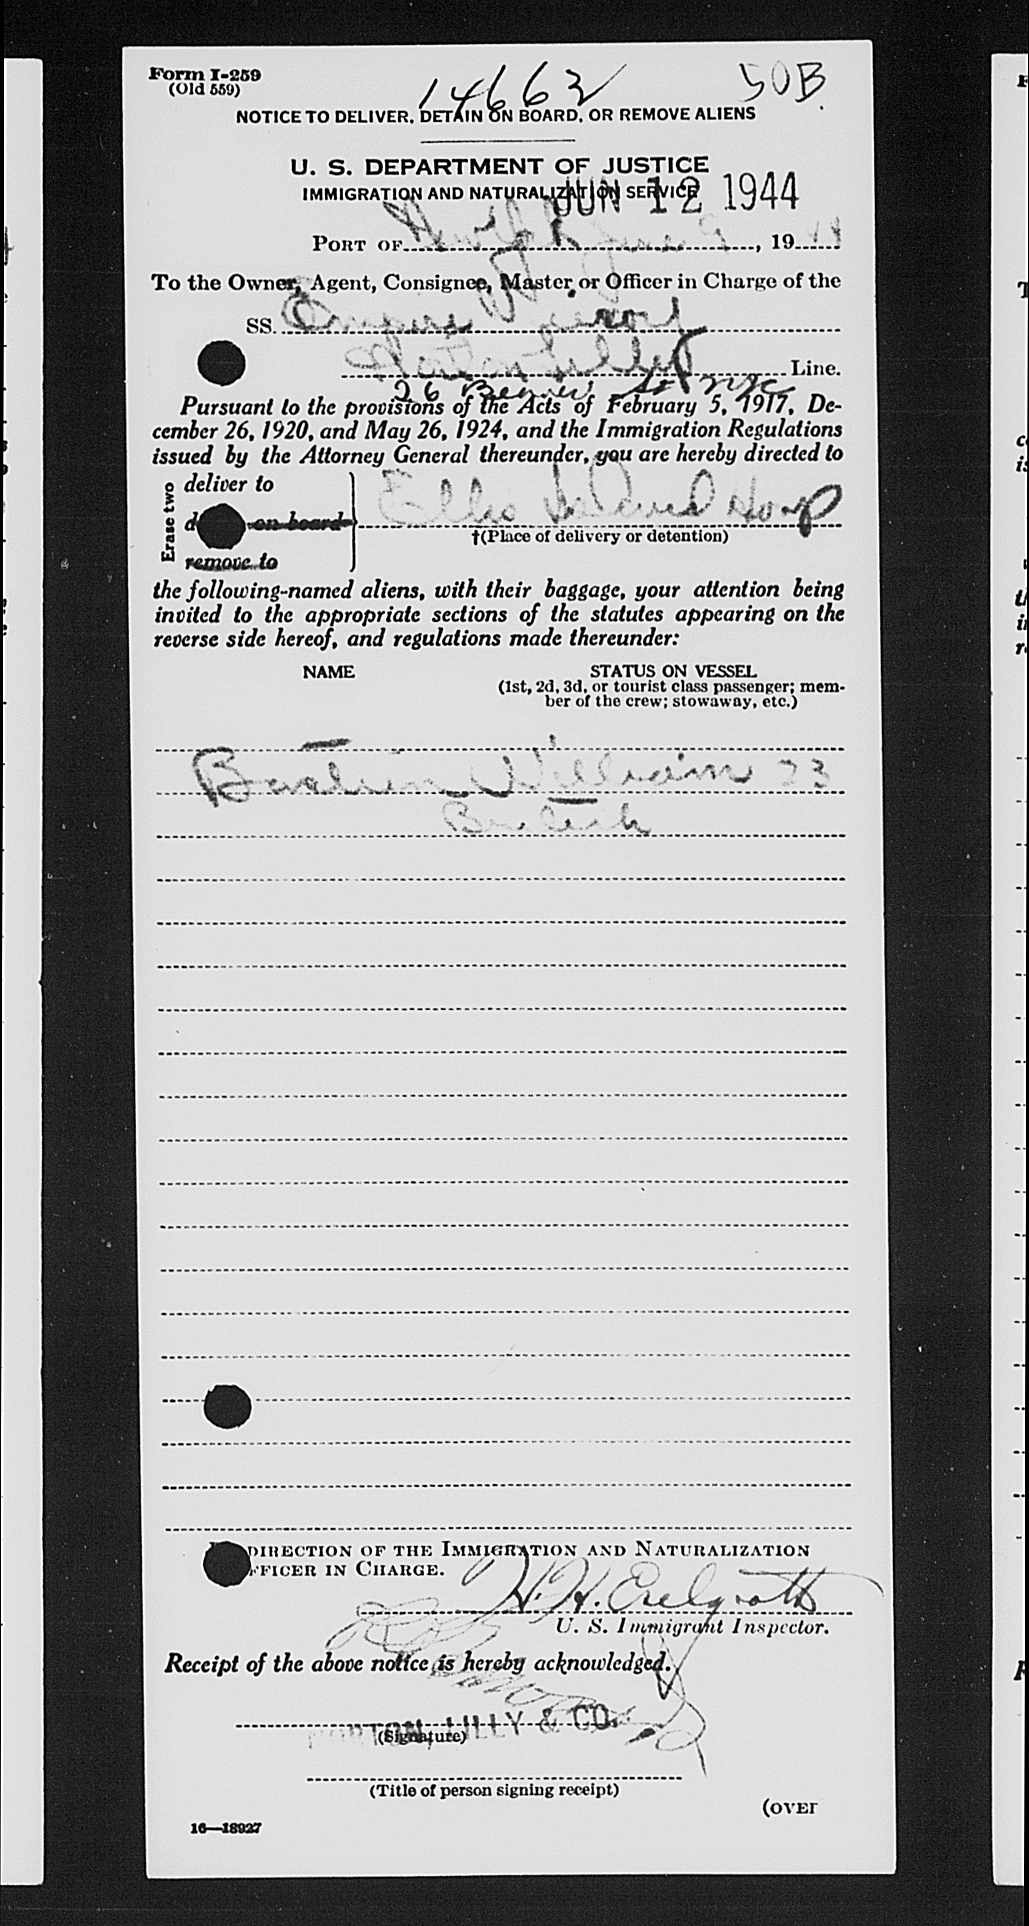 Form I-259
(Old 559)
14662
50B
NOTICE TO DELIVER, DETAIN ON BOARD, OR REMOVE ALIENS
U. S. DEPARTMENT OF JUSTICE
IMMIGRATION AND NATURALIZATION SERVICE
JUN 12 1944
PORT OF New York June 9, 1944
To the Owner, Agent, Consignee, Master, or Officer in Charge of the
SS. Empire
Norton Lilly Line.
26 Beaver St NYC
Pursuant to the provisions of the Acts of February 5, 1917, De-
cember 26, 1920, and May 26, 1924, and the Immigration Regulations
issued by the Attorney General thereunder, you are hereby directed to
Erase two
deliver to
on board
remove to
Ellis Island Hosp
†(Place of delivery or detention)
the following-named aliens, with their baggage, your attention being
invited to the appropriate sections of the statutes appearing on the
reverse side hereof, and regulations made thereunder:
NAME
STATUS ON VESSEL
(1st, 2d, 3d, or tourist class passenger; mem-
ber of the crew; stowaway, etc.)
William 23
British
DIRECTION OF THE IMMIGRATION AND NATURALIZATION
FFICER IN CHARGE.
U. S. Immigrant Inspector.
Receipt of the above notice is hereby acknowledged.
NORTON, LILLY & CO.
(Signature)
(Title of person signing receipt)
(OVER
16—18927